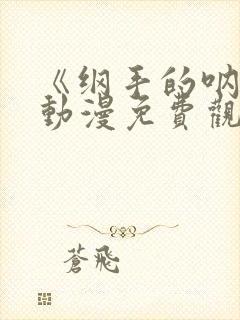 《纲手的呐
動漫免費觀
蒼飛